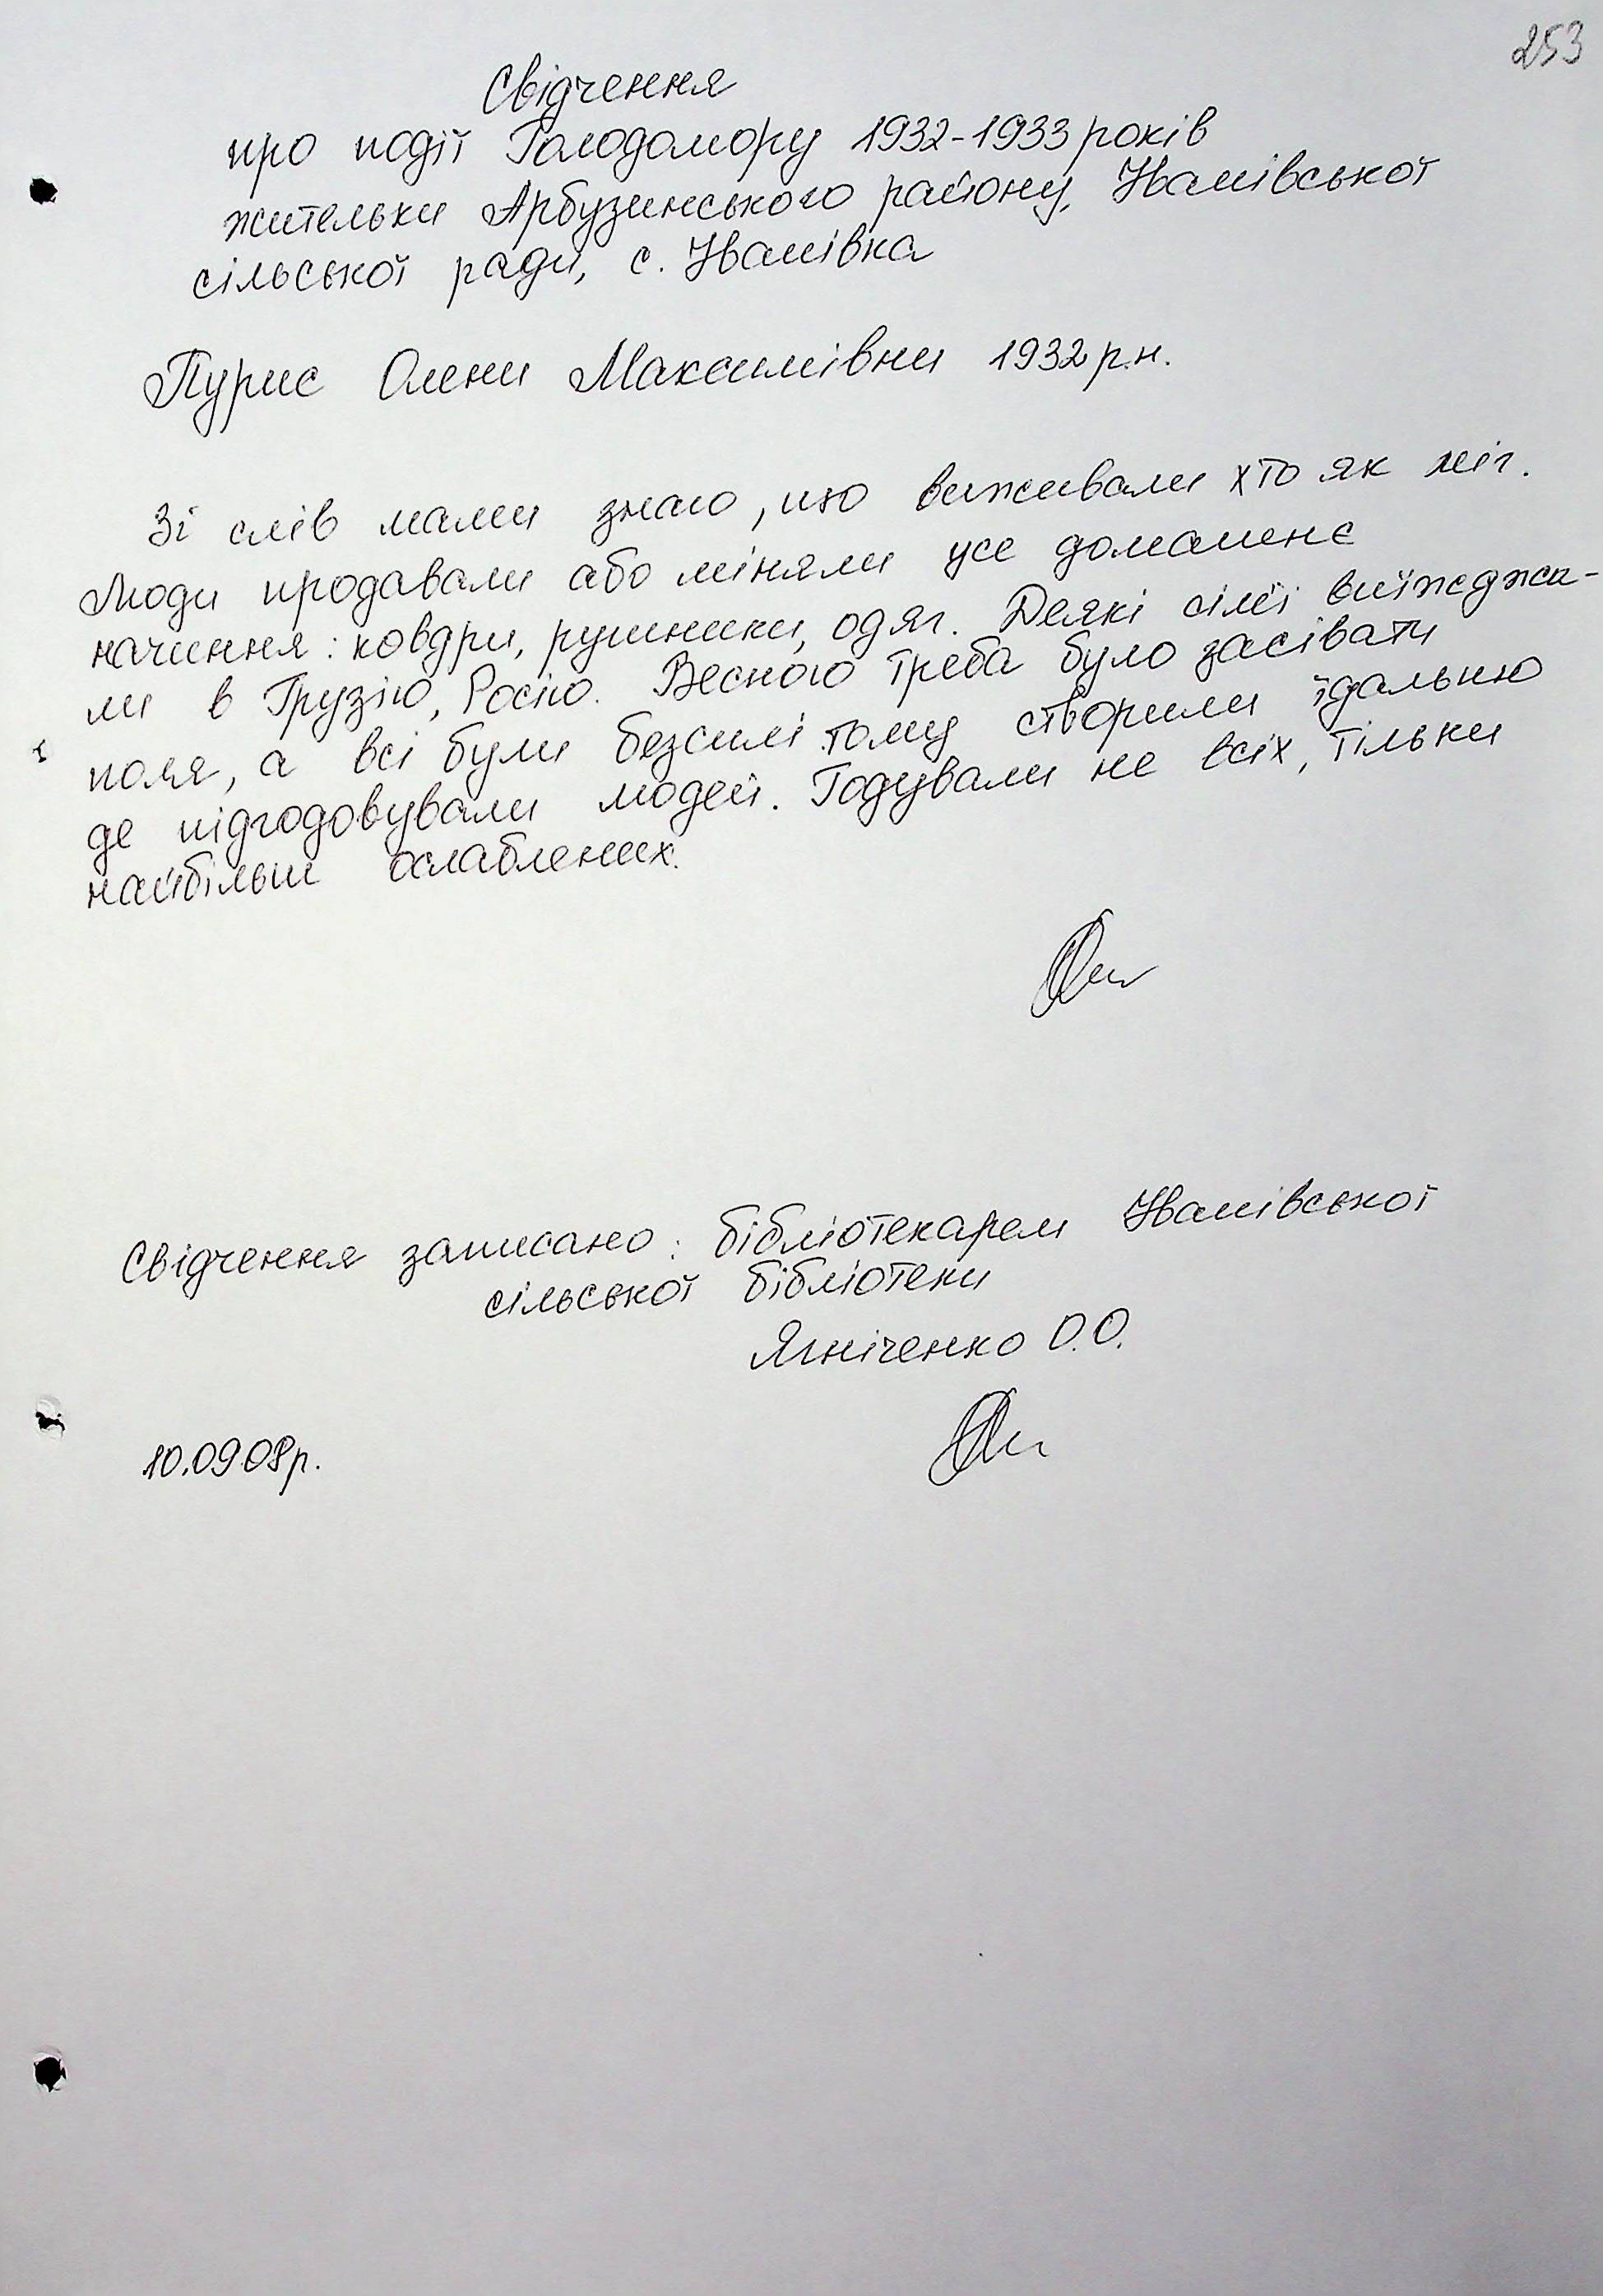 253
Свідчення
про події Голодомору 1932-1933 років
жительки Арбузинського району, Іванівської
сільської ради, с. Іванівка
Пурис Олени Максимівни 1932 р.н.
Зі слів мами знаю, що виживали хто як міг.
Люди продавали або міняли усе домашнє
начиння: ковдри, рушники, одяг. Деякі сім'ї виїжджа-
ли в Грузію, Росію. Весною треба було засівати
поля, а всі були безсилі тому створили їдальню
де підгодовували людей. Годували не всіх, тільки
найбільш ослаблених.
Свідчення записано: бібліотекарем Іванівської
сільської бібліотеки
Ягніченко О.О.
10.09.08р.